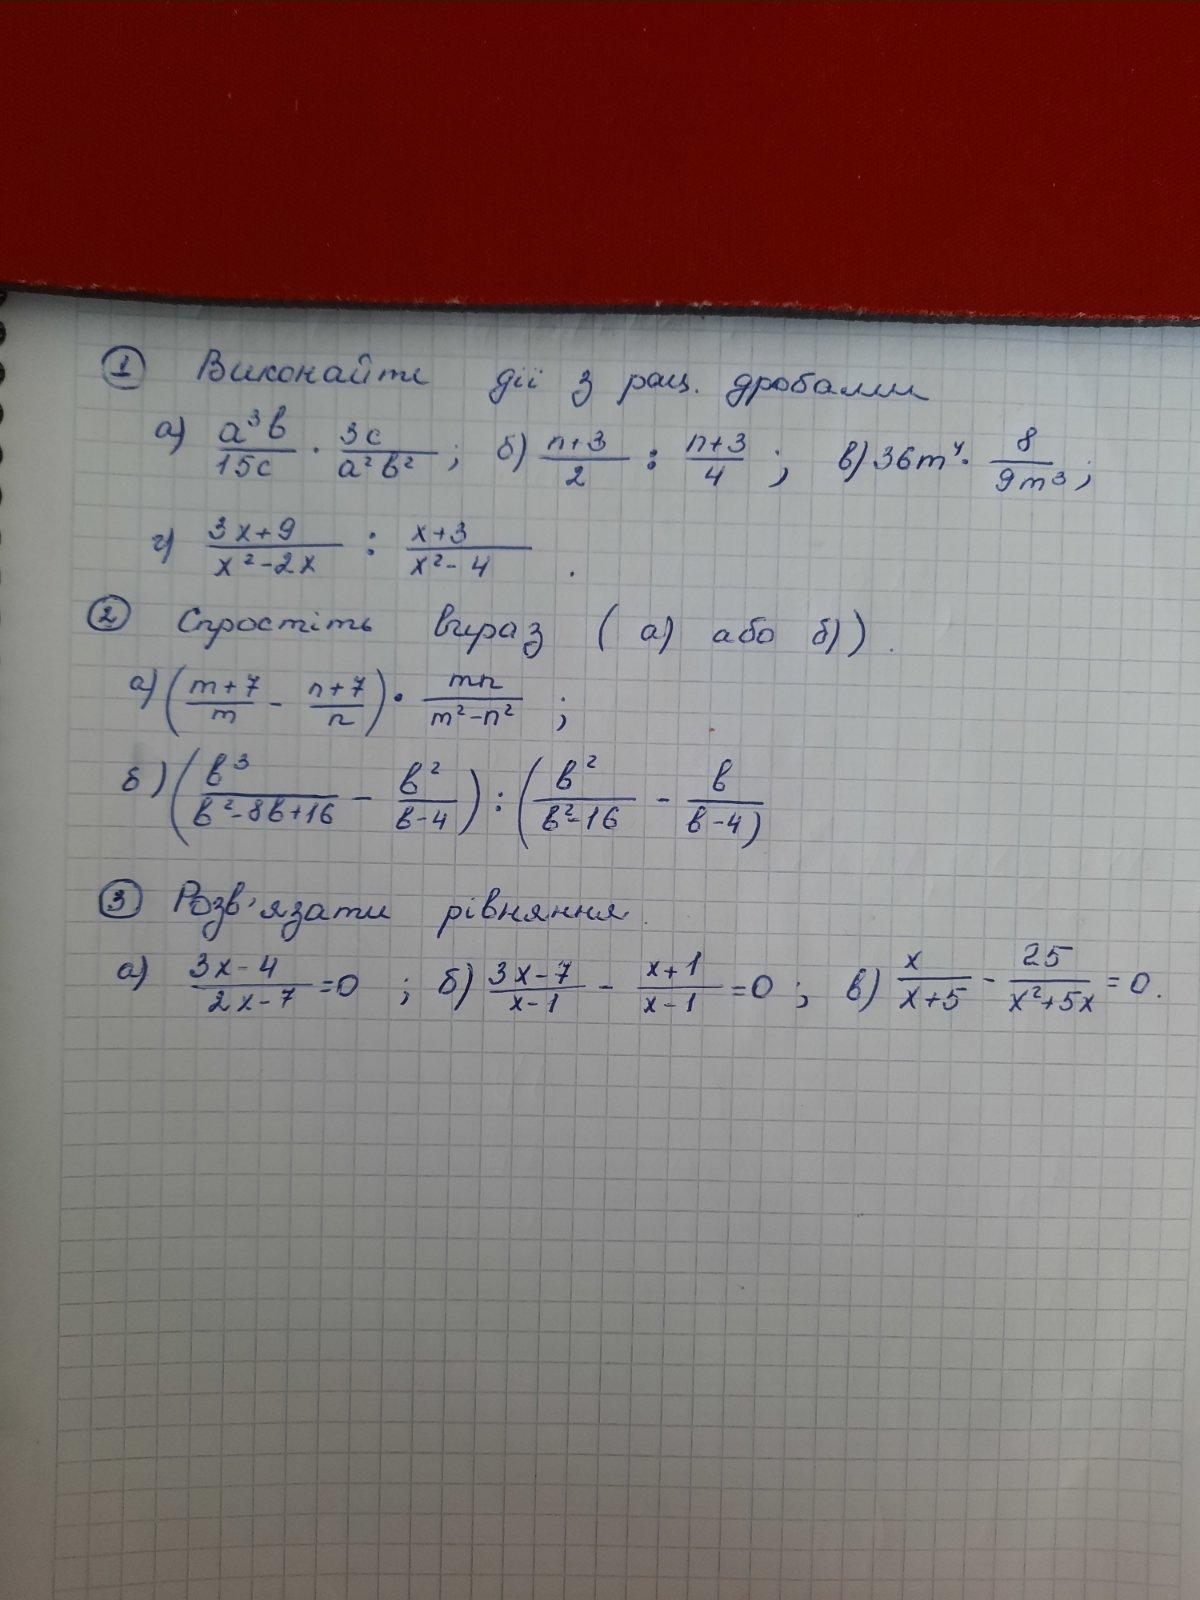 ① Виконайте дії з рац. дробами
а) a³b/15c · 3c/a²b²; б) n+3/2 : n+3/4; в) 36m⁴ · 8/9m³;
г) 3x+9/x²-2x : x+3/x²-4.
② Спростіть вираз (а) або б)).
а) (m+7/m - n+7/n) · mn/m²-n²;
б) (b³/b²-8b+16 - b²/b-4) : (b²/b²-16 - b/b-4)
③ Розв'язати рівняння.
а) 3x-4/2x-7 =0; б) 3x-7/x-1 - x+1/x-1 =0; в) x/x+5 - 25/x²+5x =0.